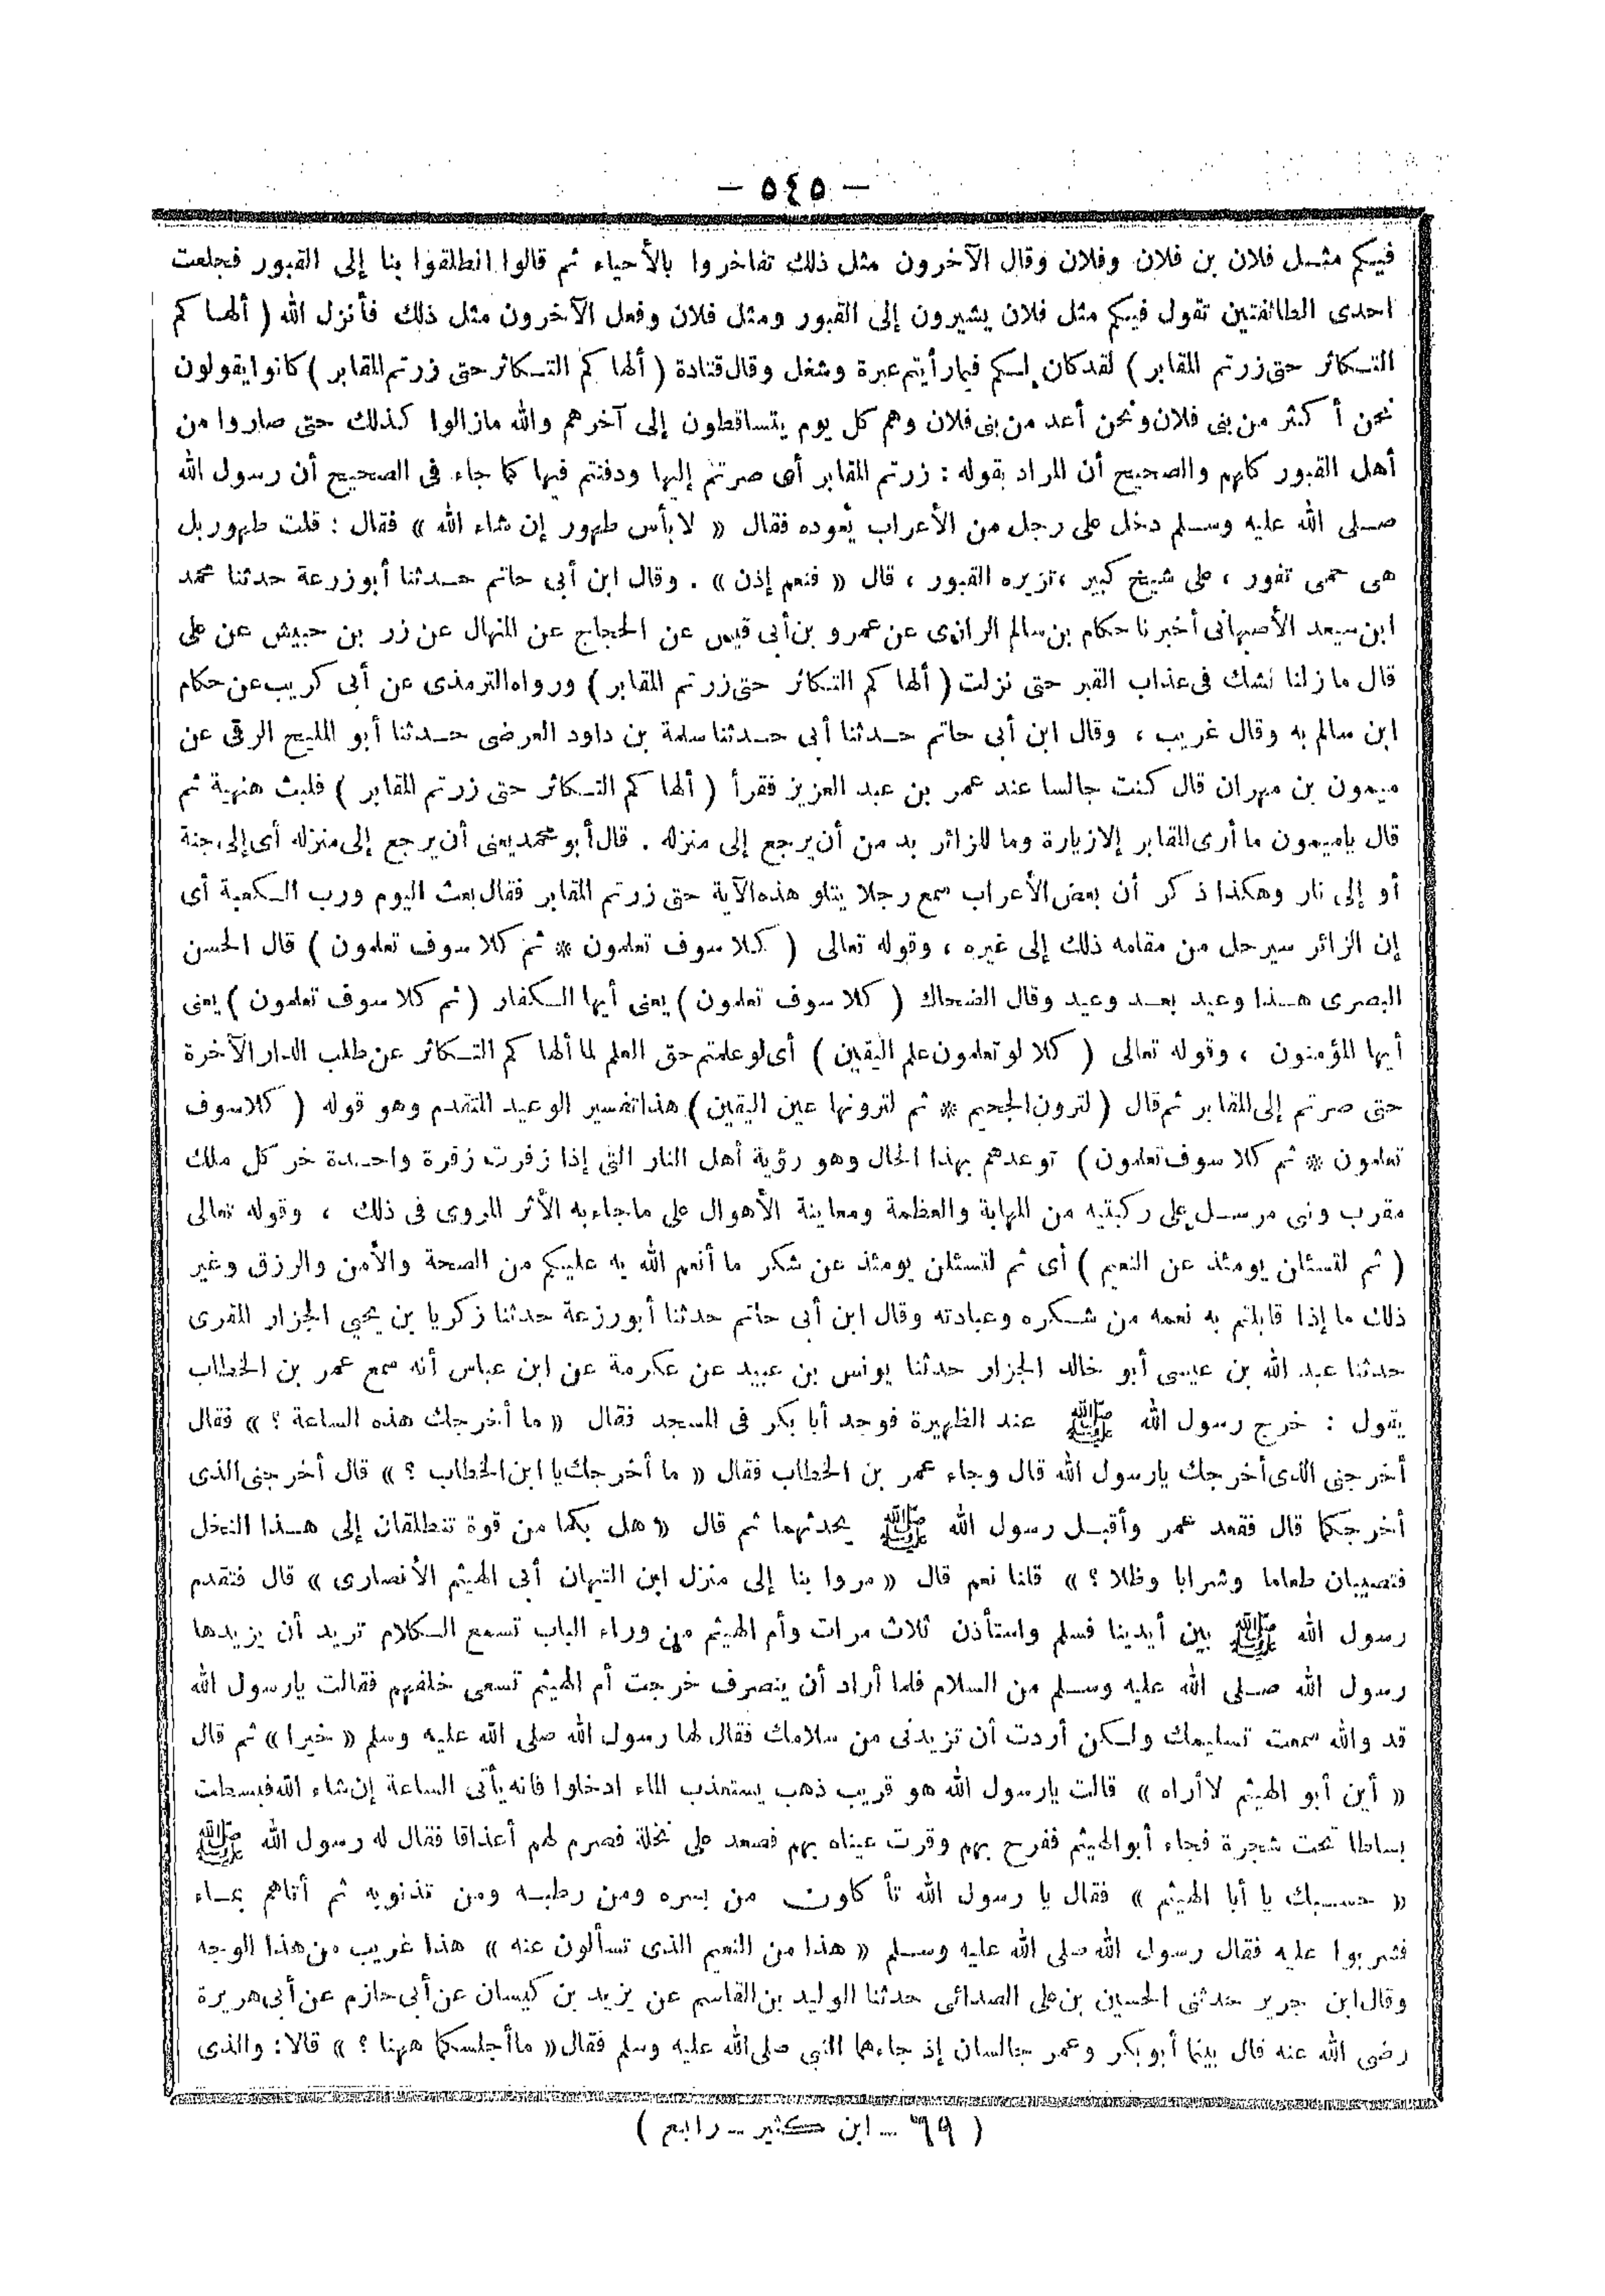 — ٥٤٥ —
فيكم مثل فلان بن فلان وفلان وقال الآخرون مثل ذلك تفاخروا بالأحياء ثم قالوا انطلقوا بنا إلى القبور فجعلت
احدى الطائفتين تقول فيكم مثل فلان يشيرون إلى القبور ومثل فلان وفعل الآخرون مثل ذلك فأنزل الله ( ألها كم
التكاثر حتى زرتم المقابر ) لقد كان لكم فيما رأيتم عبرة وشغل وقال قتادة ( ألها كم التكاثر حتى زرتم المقابر ) كانوا يقولون
نحن أكثر من بنى فلان ونحن أعد من بنى فلان وهم كل يوم يتساقطون إلى آخرهم والله مازالوا كذلك حتى صاروا من
أهل القبور كلهم والصحيح أن المراد بقوله : زرتم المقابر أى صرتم إليها ودفنتم فيها كما جاء فى الصحيح أن رسول الله
صلى الله عليه وسلم دخل على رجل من الأعراب يعوده فقال « لا بأس طهور إن شاء الله » فقال : قلت طهور بل
هى حمى تفور ، على شيخ كبير ، تزيره القبور ، قال « فنعم إذن » . وقال ابن أبى حاتم حدثنا أبوزرعة حدثنا محمد
ابن سيعد الأصبهانى أخبرنا حكام بن سالم الرازى عن عمرو بن أبى قيس عن الحجاج عن المنهال عن زر بن حبيش عن على
قال ما زلنا نشك فى عذاب القبر حتى نزلت ( ألها كم التكاثر حتى زرتم المقابر ) ورواه الترمذى عن أبى كريب عن حكام
ابن سالم به وقال غريب ، وقال ابن أبى حاتم حدثنا أبى حدثنا سلمة بن داود العرضى حدثنا أبو المليح الرقى عن
ميمون بن مهران قال كنت جالسا عند عمر بن عبد العزيز فقرأ ( ألها كم التكاثر حتى زرتم المقابر ) فلبث هنيهة ثم
قال ياميمون ما أرى المقابر إلا زيارة وما للزائر بد من أن يرجع إلى منزله . قال أبو محمد يعنى أن يرجع إلى منزله أى إلى جنة
أو إلى نار وهكذا ذكر أن بعض الأعراب سمع رجلا يتلو هذه الآية حتى زرتم المقابر فقال بعث اليوم ورب الكعبة أى
إن الزائر سيرحل من مقامه ذلك إلى غيره ، وقوله تعالى ( كلا سوف تعلمون * ثم كلا سوف تعلمون ) قال الحسن
البصرى هذا وعيد بعد وعيد وقال الضحاك ( كلا سوف تعلمون ) يعنى أيها الكفار ( ثم كلا سوف تعلمون ) يعنى
أيها المؤمنون ، وقوله تعالى ( كلا لو تعلمون علم اليقين ) أى لو علمتم حق العلم لما ألها كم التكاثر عن طلب الدار الآخرة
حتى صرتم إلى المقابر ثم قال ( لترون الجحيم * ثم لترونها عين اليقين ) هذا تفسير الوعيد المتقدم وهو قوله ( كلا سوف
تعلمون * ثم كلا سوف تعلمون ) توعدهم بهذا الحال وهو رؤية أهل النار التى إذا زفرت زفرة واحدة خر كل ملك
مقرب ونبى مرسل على ركبتيه من المهابة والعظمة ومعاينة الأهوال على ماجاء به الأثر المروى فى ذلك ، وقوله تعالى
( ثم لتسئلن يومئذ عن النعيم ) أى ثم لتسئلن يومئذ عن شكر ما أنعم الله به عليكم من الصحة والأمن والرزق وغير
ذلك ما إذا قابلتم به نعمه من شكره وعبادته وقال ابن أبى حاتم حدثنا أبورزعة حدثنا زكريا بن يحيي الجزار المقرى
حدثنا عبد الله بن عيسى أبو خالد الجزار حدثنا يونس بن عبيد عن عكرمة عن ابن عباس أنه سمع عمر بن الخطاب
يقول : خرج رسول الله ﷺ عند الظهيرة فوجد أبا بكر فى المسجد فقال « ما أخرجك هذه الساعة ؟ » فقال
أخرجنى الذى أخرجك يارسول الله قال وجاء عمر بن الخطاب فقال « ما أخرجك يا ابن الخطاب ؟ » قال أخرجنى الذى
أخرجكما قال فقعد عمر وأقبل رسول الله ﷺ يحدثهما ثم قال « هل بكما من قوة تنطلقان إلى هذا النخل
فتصيبان طعاما وشرابا وظلا ؟ » قلنا نعم قال « مروا بنا إلى منزل ابن التيهان أبى الهيثم الأنصارى » قال فتقدم
رسول الله ﷺ بين أيدينا فسلم واستأذن ثلاث مرات وأم الهيثم من وراء الباب تسمع الكلام تريد أن يزيدها
رسول الله صلى الله عليه وسلم من السلام فلما أراد أن ينصرف خرجت أم الهيثم تسعى خلفهم فقالت يارسول الله
قد والله سمعت تسليمك ولكن أردت أن تزيدنى من سلامك فقال لها رسول الله صلى الله عليه وسلم « خيرا » ثم قال
« أين أبو الهيثم لا أراه » قالت يارسول الله هو قريب ذهب يستعذب الماء ادخلوا فانه يأتى الساعة إن شاء الله فبسطت
بساطا تحت شجرة فجاء أبو الهيثم ففرح بهم وقرت عيناه بهم فصعد على نخلة فصرم لهم أعذاقا فقال له رسول الله ﷺ
« حسبك يا أبا الهيثم » فقال يا رسول الله تأكلون من بسره ومن رطبه ومن تذنوبه ثم أتاهم بماء
فشربوا عليه فقال رسول الله صلى الله عليه وسلم « هذا من النعيم الذى تسألون عنه » هذا غريب من هذا الوجه
وقال ابن جرير حدثنى الحسين بن على الصدائى حدثنا الوليد بن القاسم عن يزيد بن كيسان عن أبى حازم عن أبى هريرة
رضى الله عنه قال بينما أبو بكر وعمر جالسان إذ جاءهما النبى صلى الله عليه وسلم فقال « ما أجلسكما ههنا ؟ » قالا : والذى
( ٦٩ — ابن كثير — رابع )